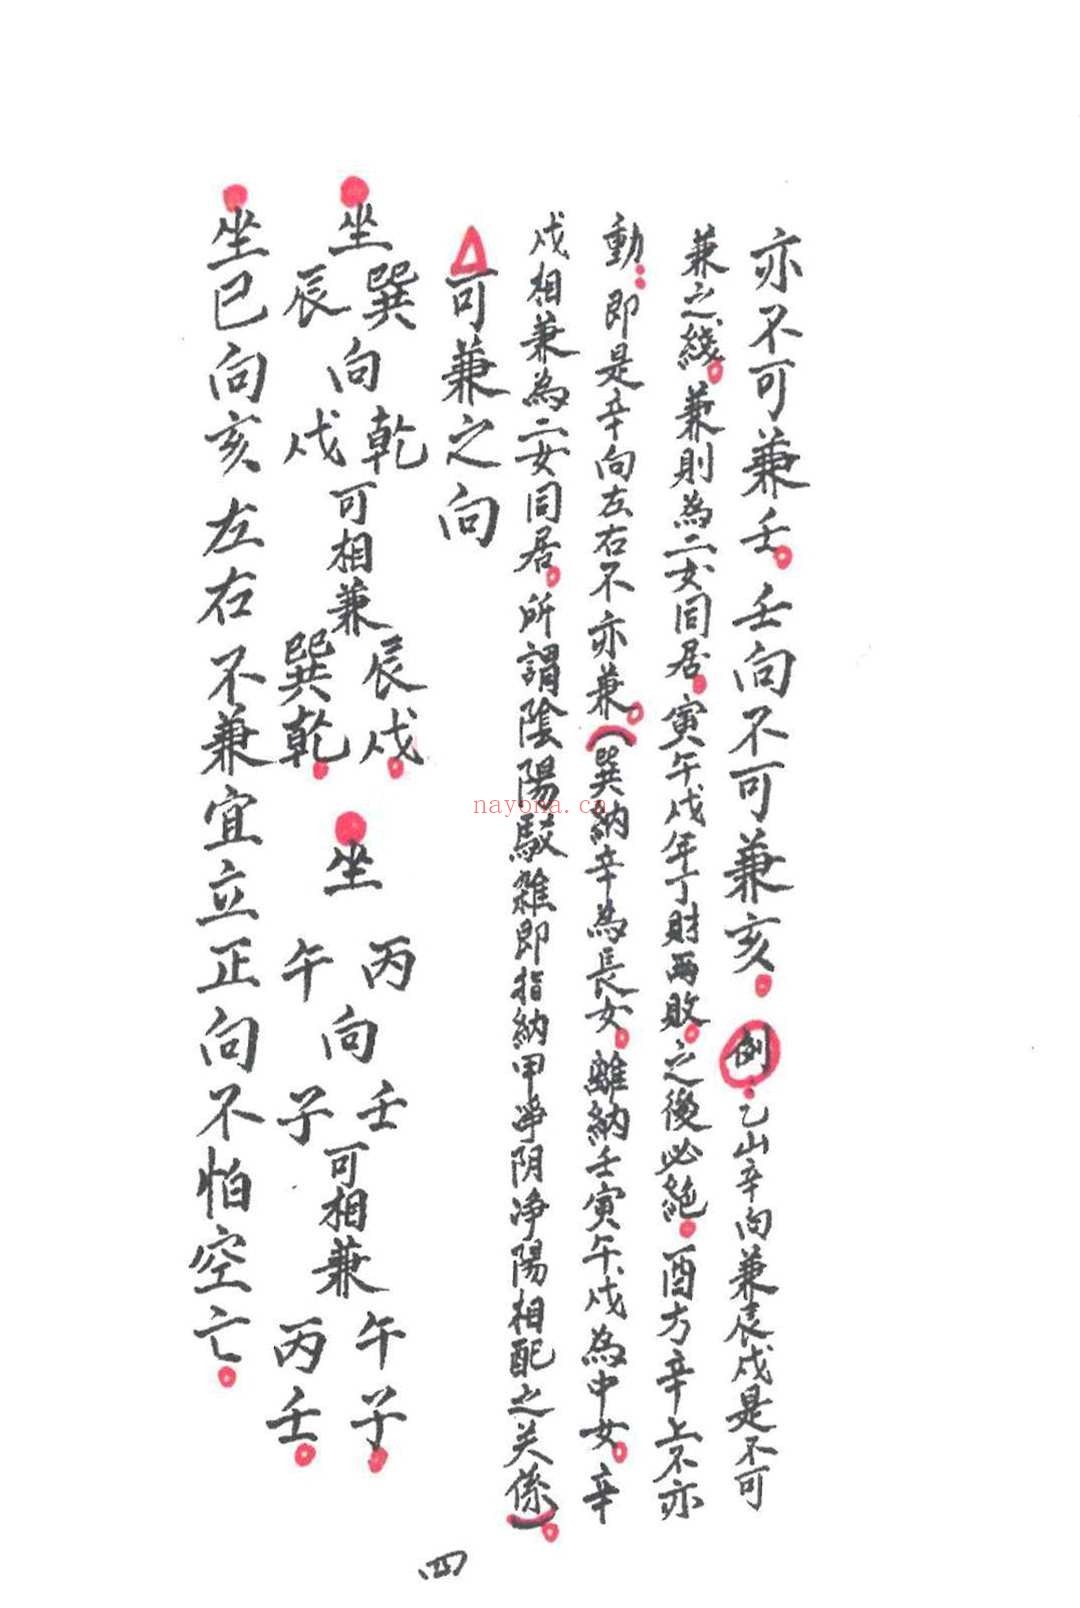 亦不可兼壬。壬向不可兼亥。例：乙山辛向兼辰戌是不可
兼之綫。兼則為二女同居。寅午戌年丁財兩敗。之後必絕。酉方辛上不亦
動：即是辛向左右不亦兼。（巽納辛為長女。離納壬寅午戌為中女。辛
戌相兼為二女同居。所謂陰陽駁雜即指納甲淨阴净陽相配之关係）。
△可兼之向
坐巽辰向乾戌可相兼辰戌。巽乾。
坐丙午向壬子可相兼午子。丙壬。
坐巳向亥左右不兼宜立正向不怕空亡。
四
nayona.cn